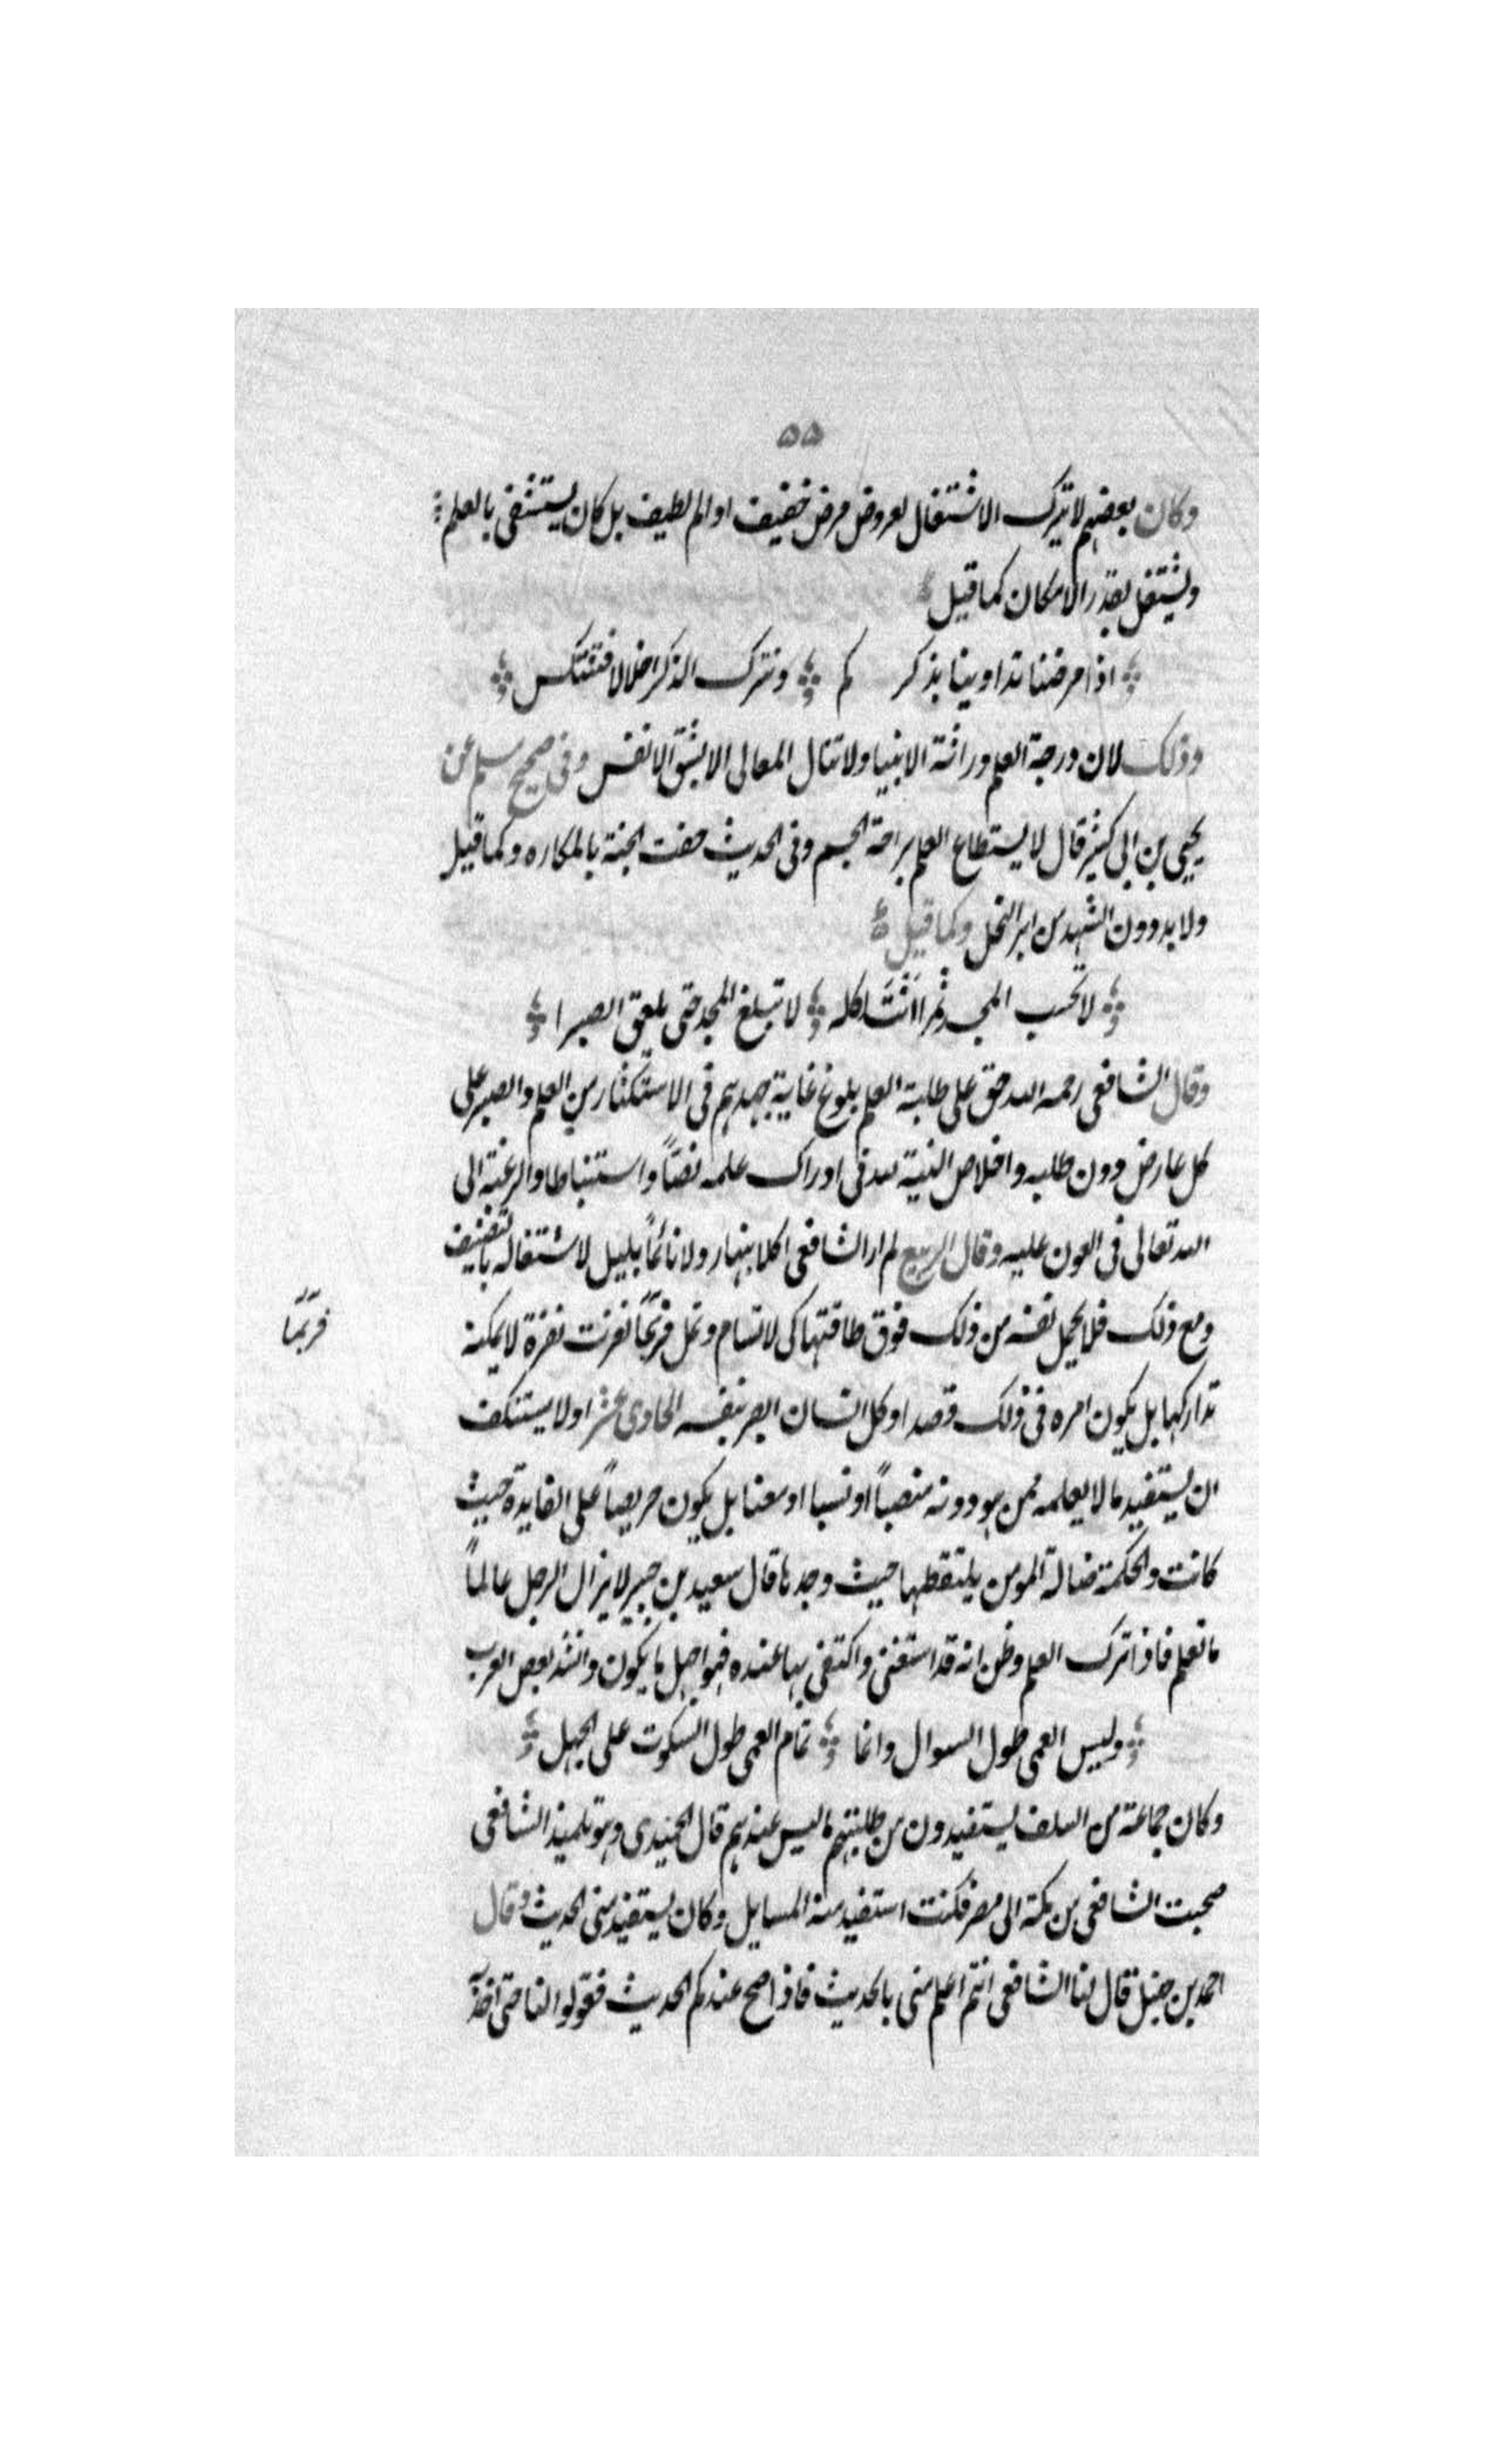 ۵۵
وكان بعضهم لا يترك الاشتغال لعروض مرض خفيف او الم لطيف بل كان يستشفى بالعلم
ويشتغل بقدر الامكان كما قيل
اذا مرضنا تداوينا بذكركم ونترك الذكر اخلالا فننتكس
وذلك لان درجة العلم وراثة الانبيا ولا تنال المعالى الا بشق الانفس وفى صحيح مسلم عن
يحيى بن ابى كثير قال لا يستطاع العلم براحة الجسم وفى الحديث حفت الجنة بالمكاره وكما قيل
ولا بد دون الشهد من ابر النحل وكما قيل
لا تحسب المجد تمرا انت اكله لا تبلغ المجد حتى تلعق الصبرا
وقال الشافعى رحمه الله حق على طلبة العلم بلوغ غاية جهدهم فى الاستكثار من العلم والصبر على
كل عارض دون طلبه واخلاص النية لله فى ادراك علمه نصاً واستنباطا والرغبة الى
الله تعالى فى العون عليه وقال الربيع لم ار الشافعى اكلا بنهار ولا نائماً بليل لاشتغاله بالتصنيف
ومع ذلك فلا يحمل نفسه من ذلك فوق طاقتها كى لا تسام وتمل فربّما نفرت نفرة لا يمكنه
فربّما
تداركها بل يكون امره فى ذلك قصدا وكل انسان ابصر بنفسه الحادى عشر ان لا يستنكف
ان يستفيد ما لا يعلمه ممن هو دونه منصباً او نسبا او سنا بل يكون حريصاً على الفايدة حيث
كانت والحكمة ضالة المومن يلتقطها حيث وجدها قال سعيد بن جبير لا يزال الرجل عالماً
ما تعلم فاذا ترك العلم وظن انه قد استغنى واكتفى بما عنده فهو اجهل ما يكون وانشد بعض العرب
وليس العمى طول السوال وانما تمام العمى طول السكوت على الجهل
وكان جماعة من السلف يستفيدون من طلبتهم ما ليس عندهم قال الحميدى وهو تلميذ الشافعى
صحبت الشافعى من مكة الى مصر فكنت استفيد منه المسايل وكان يستفيد منى الحديث وقال
احمد بن حنبل قال لنا الشافعى انتم اعلم منى بالحديث فاذا صح عندكم الحديث فقولوا لنا حتى اخذ